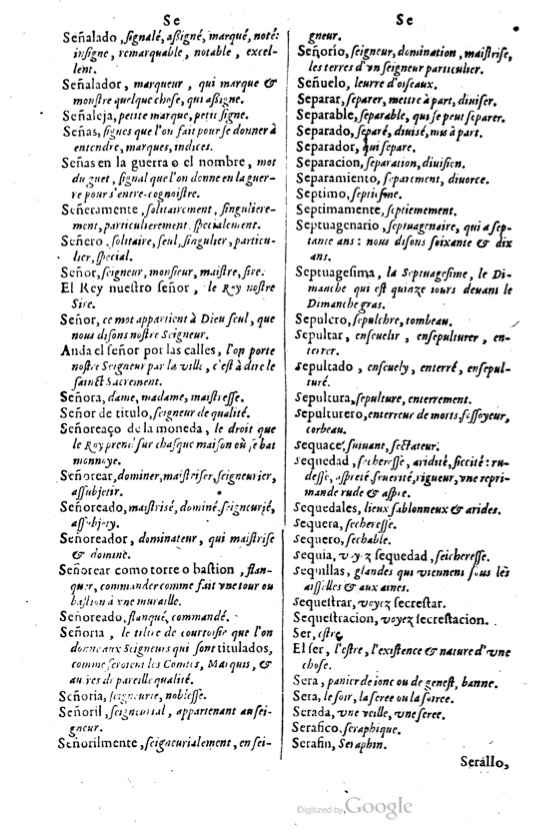 Se
Señalado, ſignalé, aſſigné, marqué, noté:
inſigne, remarquable, notable, excel-
lent.
Señalador, marqueur, qui marque &
monſtre quelque choſe, qui aſſigne.
Señaleja, petite marque, petit ſigne.
Señas, ſignes que l'on fait pour ſe donner à
entendre, marques, indices.
Señas en la guerra o el nombre, mot
du guet, ſignal que l'on donne en la guer-
re pour s'entre-cognoiſtre.
Señeramente, ſolitairement, ſinguliere-
ment, particulierement, ſpecialement.
Señero, ſolitaire, ſeul, ſingulier, particu-
lier, ſpecial.
Señor, ſeigneur, monſieur, maiſtre, ſire.
El Rey nueſtro ſeñor, le Roy noſtre
Sire.
Señor, ce mot appartient à Dieu ſeul, que
nous diſons noſtre Seigneur.
Anda el ſeñor por las calles, l'on porte
noſtre Seigneur par la ville, c'eſt à dire le
ſainct Sacrement.
Señora, dame, madame, maiſtreſſe.
Señor de titulo, ſeigneur de qualité.
Señoreaço de la moneda, le droit que
le Roy prend ſur chaſque maiſon où ſe bat
monnoye.
Señorear, dominer, maiſtriſer, ſeigneurier,
aſſubjetir.
Señoreado, maiſtriſé, dominé, ſeigneurié,
aſſubjety.
Señoreador, dominateur, qui maiſtriſe
& domine.
Señorear como torre o baſtion, flan-
quer, commander comme fait vne tour ou
baſtion à vne muraille.
Señoreado, flanqué, commandé.
Señoria, le tiltre de courtoiſie que l'on
donne aux Seigneurs qui ſont titulados,
comme ſeroient les Comtes, Marquis, &
autres de pareille qualité.
Señoria, ſeigneurie, nobleſſe.
Señoril, ſeigneurial, appartenant au ſei-
gneur.
Señorilmente, ſeigneurialement, en ſei-
Se
gneur.
Señorio, ſeigneur, domination, maiſtriſe,
les terres d'vn ſeigneur particulier.
Señuelo, leurre d'oiſeaux.
Separar, ſeparer, mettre à part, diuiſer.
Separable, ſeparable, qui ſe peut ſeparer.
Separado, ſeparé, diuisé, mis à part.
Separador, qui ſepare.
Separacion, ſeparation, diuiſion.
Separamiento, ſeparement, diuorce.
Septimo, ſeptieſme.
Septimamente, ſeptiemement.
Septuagenario, ſeptuagenaire, qui a ſep-
tante ans: nous diſons ſoixante & dix
ans.
Septuageſima, la Septuageſime, le Di-
manche qui eſt quinze iours deuant le
Dimanche gras.
Sepulcro, ſepulchre, tombeau.
Sepultar, enſeuelir, enſepulturer, en-
terrer.
Sepultado, enſeuely, enterré, enſepul-
turé.
Sepultura, ſepulture, enterrement.
Sepulturero, enterreur de morts, foſſoyeur,
corbeau.
Sequace, ſuiuant, ſectateur.
Sequedad, ſechereſſe, aridité, ſiccité: ru-
deſſe, aſpreté, ſeuerité, rigueur, vne repri-
mande rude & aſpre.
Sequedales, lieux ſablonneux & arides.
Sequera, ſechereſſe.
Sequero, ſechable.
Sequia, voyez ſequedad, ſeichereſſe.
Sequillas, glandes qui viennent ſous les
aiſſelles & aux aines.
Sequeſtrar, voyez ſecreſtar.
Sequeſtracion, voyez ſecreſtacion.
Ser, eſtre
El ſer, l'eſtre, l'exiſtence & nature d'vne
choſe.
Sera, panier de ionc ou de geneſt, banne.
Sera, le ſoir, la ſeree ou la ſoiree.
Serada, vne veille, vne ſeree.
Serafico, ſeraphique.
Serafin, Seraphin.
Serallo,
Digitized by Google